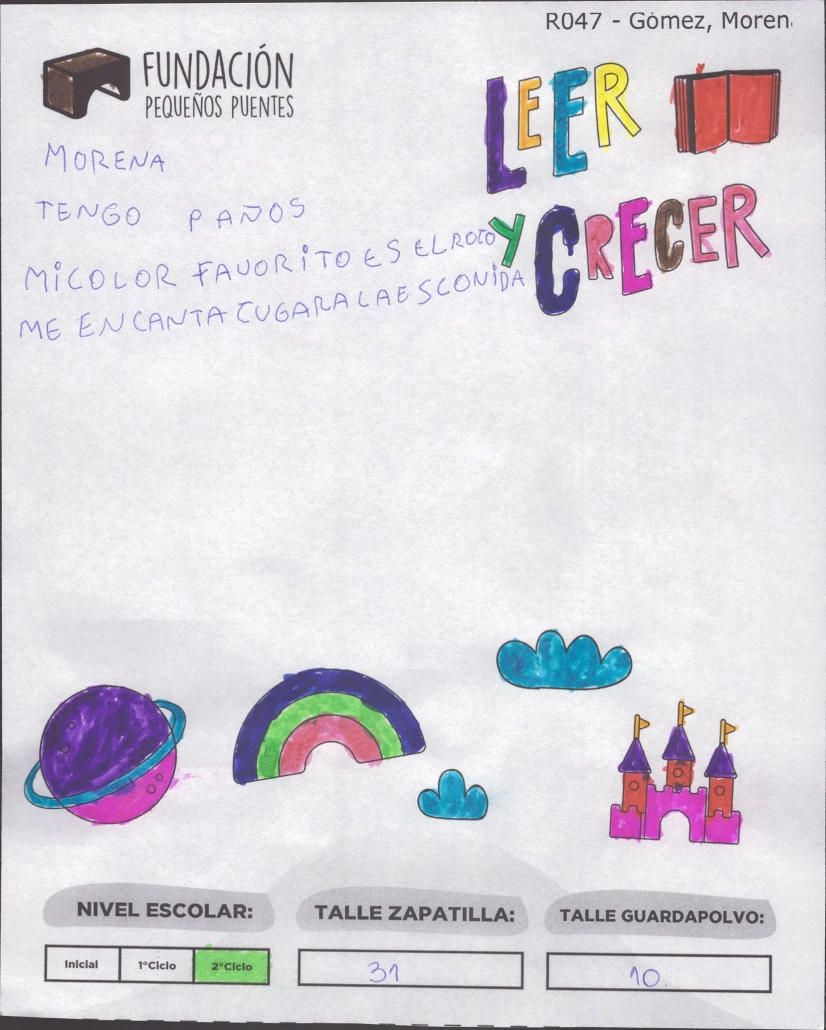 R047 - Gómez, Moren
FUNDACIÓN
PEQUEÑOS PUENTES
LEER
Y CRECER
MORENA
TENGO 9 AÑOS
MiCOLOR FAVORiTO ES EL ROJO
ME ENCANTA JUGAR A LA ESCONiDA
NIVEL ESCOLAR:
TALLE ZAPATILLA:
TALLE GUARDAPOLVO:
Inicial 1°Ciclo 2°Ciclo
31
10